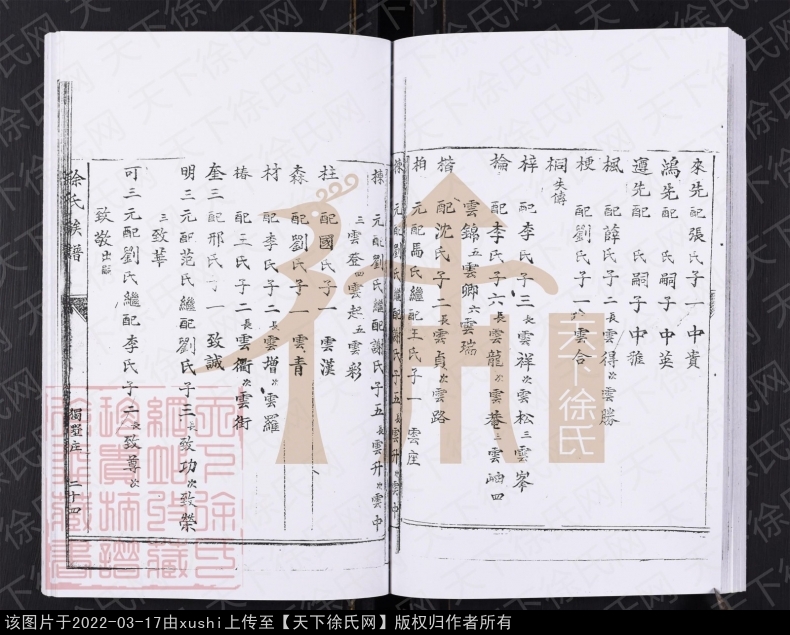 來先配張氏子一中貴
鴻先配　氏嗣子中英
遵先配　氏嗣子中雅
楓　配薛氏子二長雲得次雲勝
梗　配劉氏子一　雲合
桐失傳
梓　配李氏子三長雲祥次雲松三雲峯
掄　配李氏子六長雲龍次雲菴三雲岫四
雲錦五雲卿六雲瑞
楷　配沈氏子二長雲貞次雲路
柏　元配馬氏繼配王氏子一　雲座
棟　元配劉氏繼配謝氏子五長雲升次雲中
棟　元配劉氏繼配謝氏子五長雲升次雲中
三雲登四雲起五雲彩
柱　配國氏子一　雲漢
森　配劉氏子一　雲青
材　配李氏子二長雲增次雲羅
椿　配王氏子二長雲衢次雲街
奎三配邢氏子一　致誠
明三元配范氏繼配劉氏子三長致功次致榮
三致華
可三元配劉氏繼配李氏子二長致尊次
致敬出嗣
徐氏族譜
獨野庄　二十四
天下徐氏
天下徐氏网
该图片于2022-03-17由xushi上传至【天下徐氏网】版权归作者所有